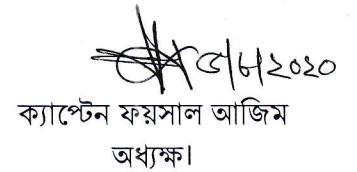 ৫/৮/২০২০
ক্যাপ্টেন ফয়সাল আজিম
অধ্যক্ষ।